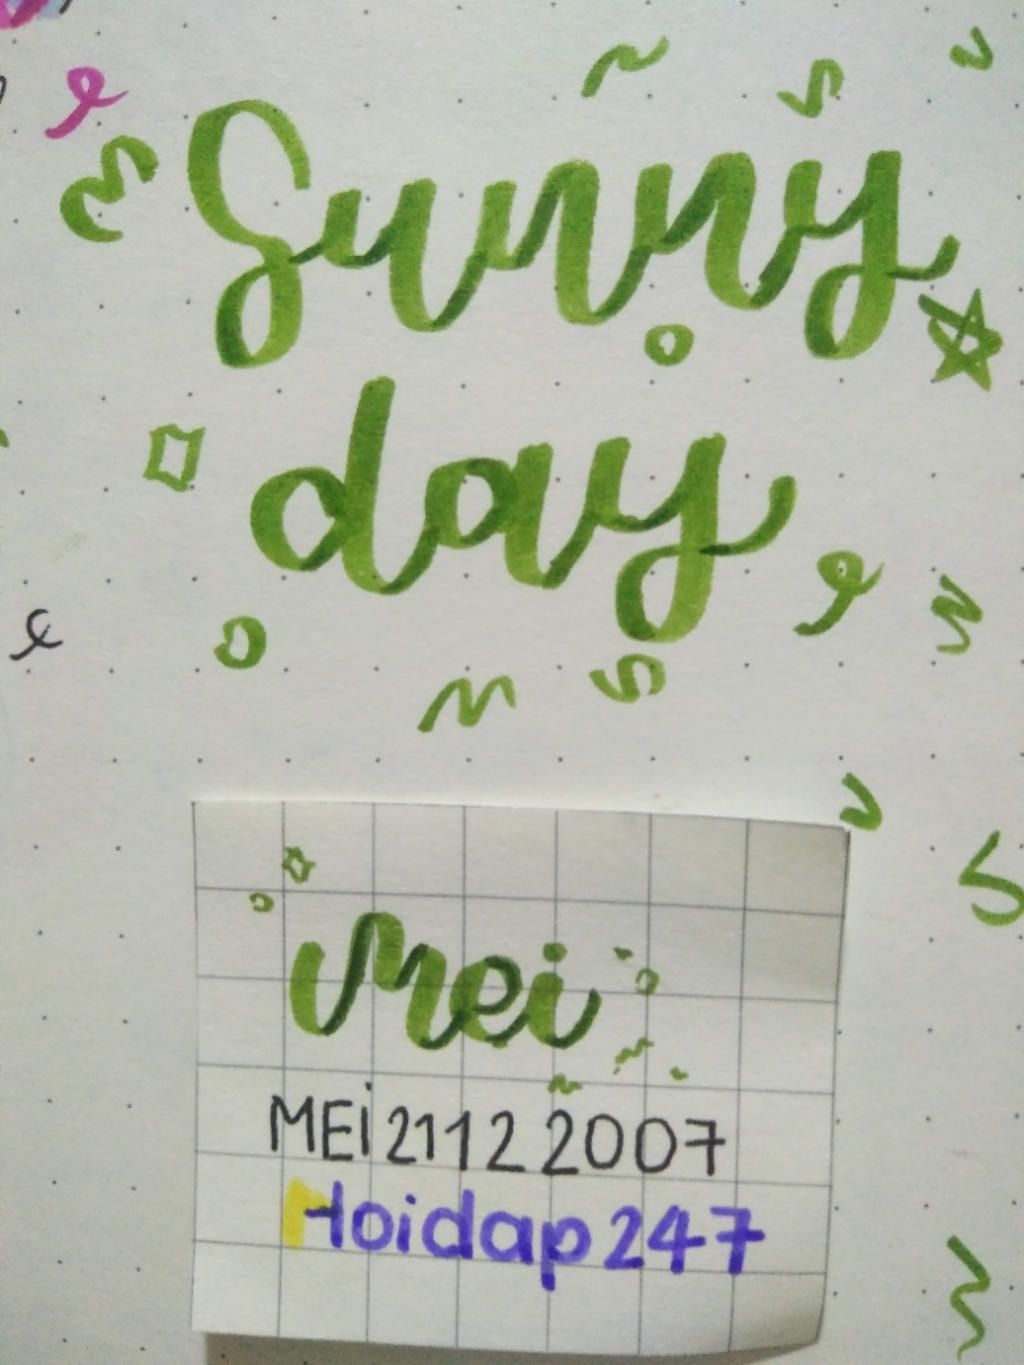 Sunny
day
Mei
MEi21122007
Hoidap247